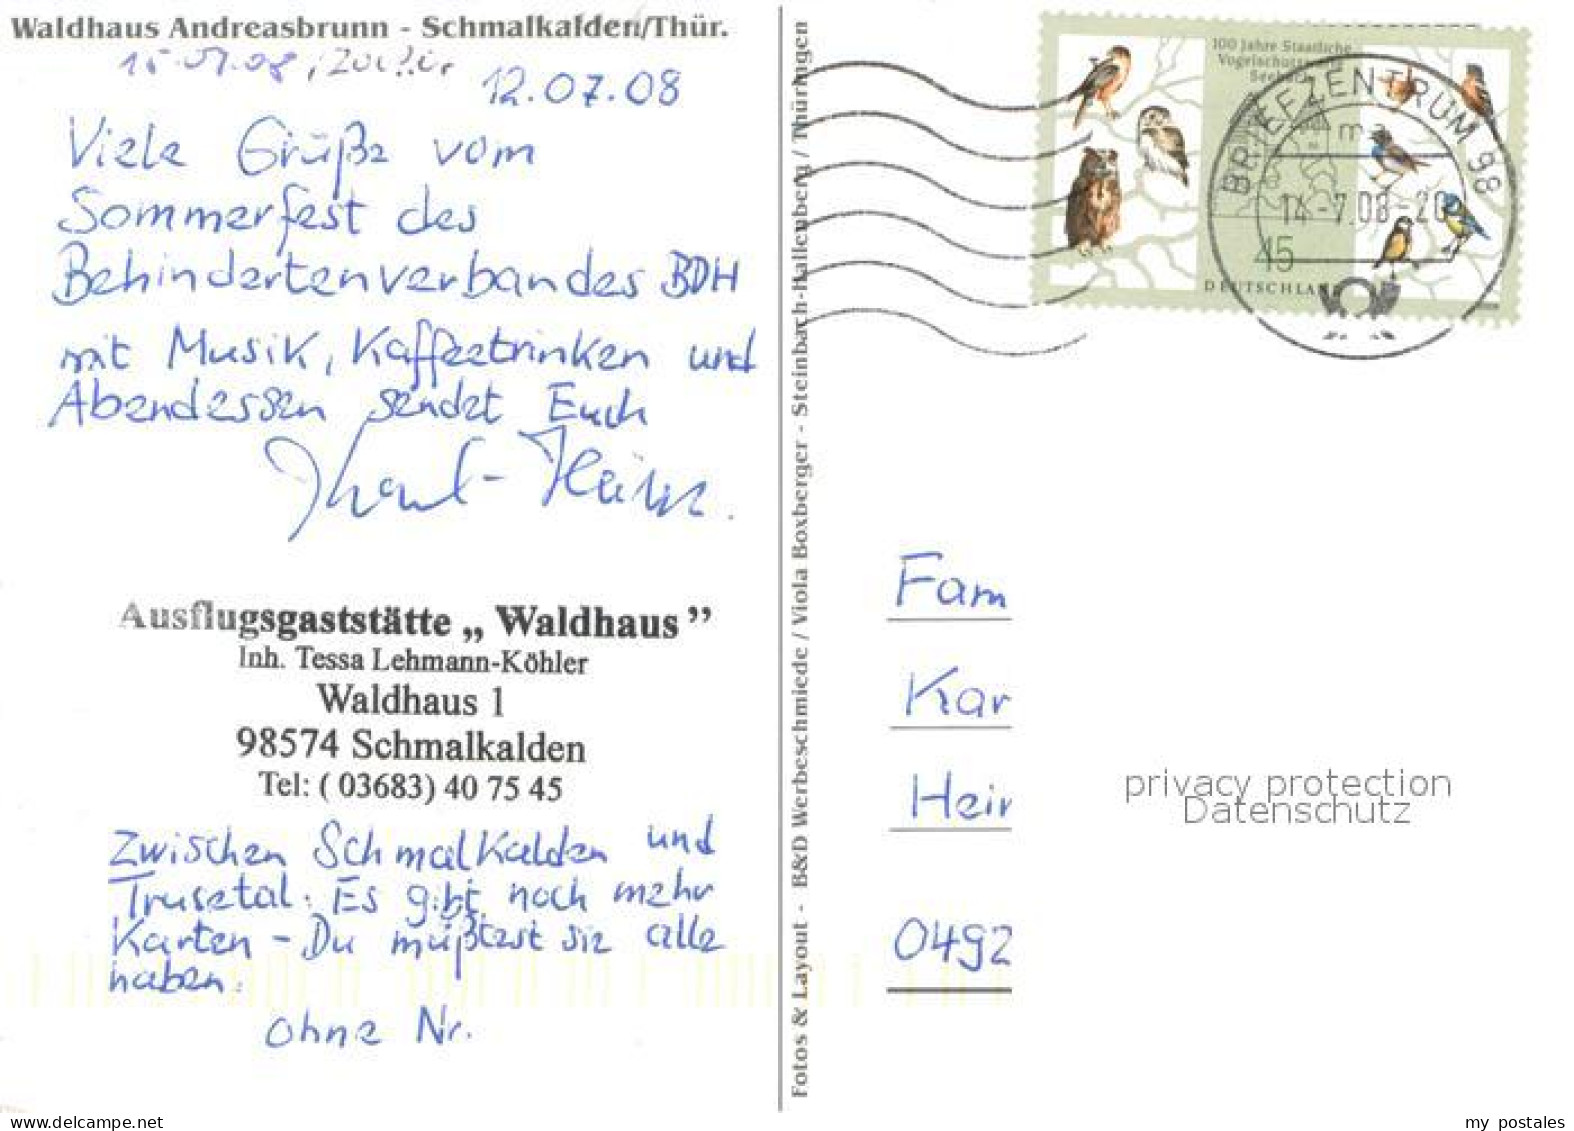 Waldhaus Andreasbrunn - Schmalkalden/Thür.
15.07.08
12.07.08
Viele Grüße vom
Sommerfest des
Behindertenverbandes BDH
mit Musik, Kaffeetrinken und
Abendessen sendet Euch
Karl-Heinz.
Ausflugsgaststätte „ Waldhaus ”
Inh. Tessa Lehmann-Köhler
Waldhaus 1
98574 Schmalkalden
Tel: ( 03683) 40 75 45
Zwischen Schmalkalden und
Trusetal. Es gibt noch mehr
Karten - Du müßtest sie alle
haben.
ohne Nr.
Fotos & Layout - B&D Werbeschmiede / Viola Boxberger - Steinbach-Hallenberg / Thüringen
100 Jahre Staatliche
Vogelschutzwarte
Seebach
45
DEUTSCHLAND
BRIEFZENTRUM 98
14-7.08-20
Fam
Kar
Hein
0492
privacy protection
Datenschutz
my postales